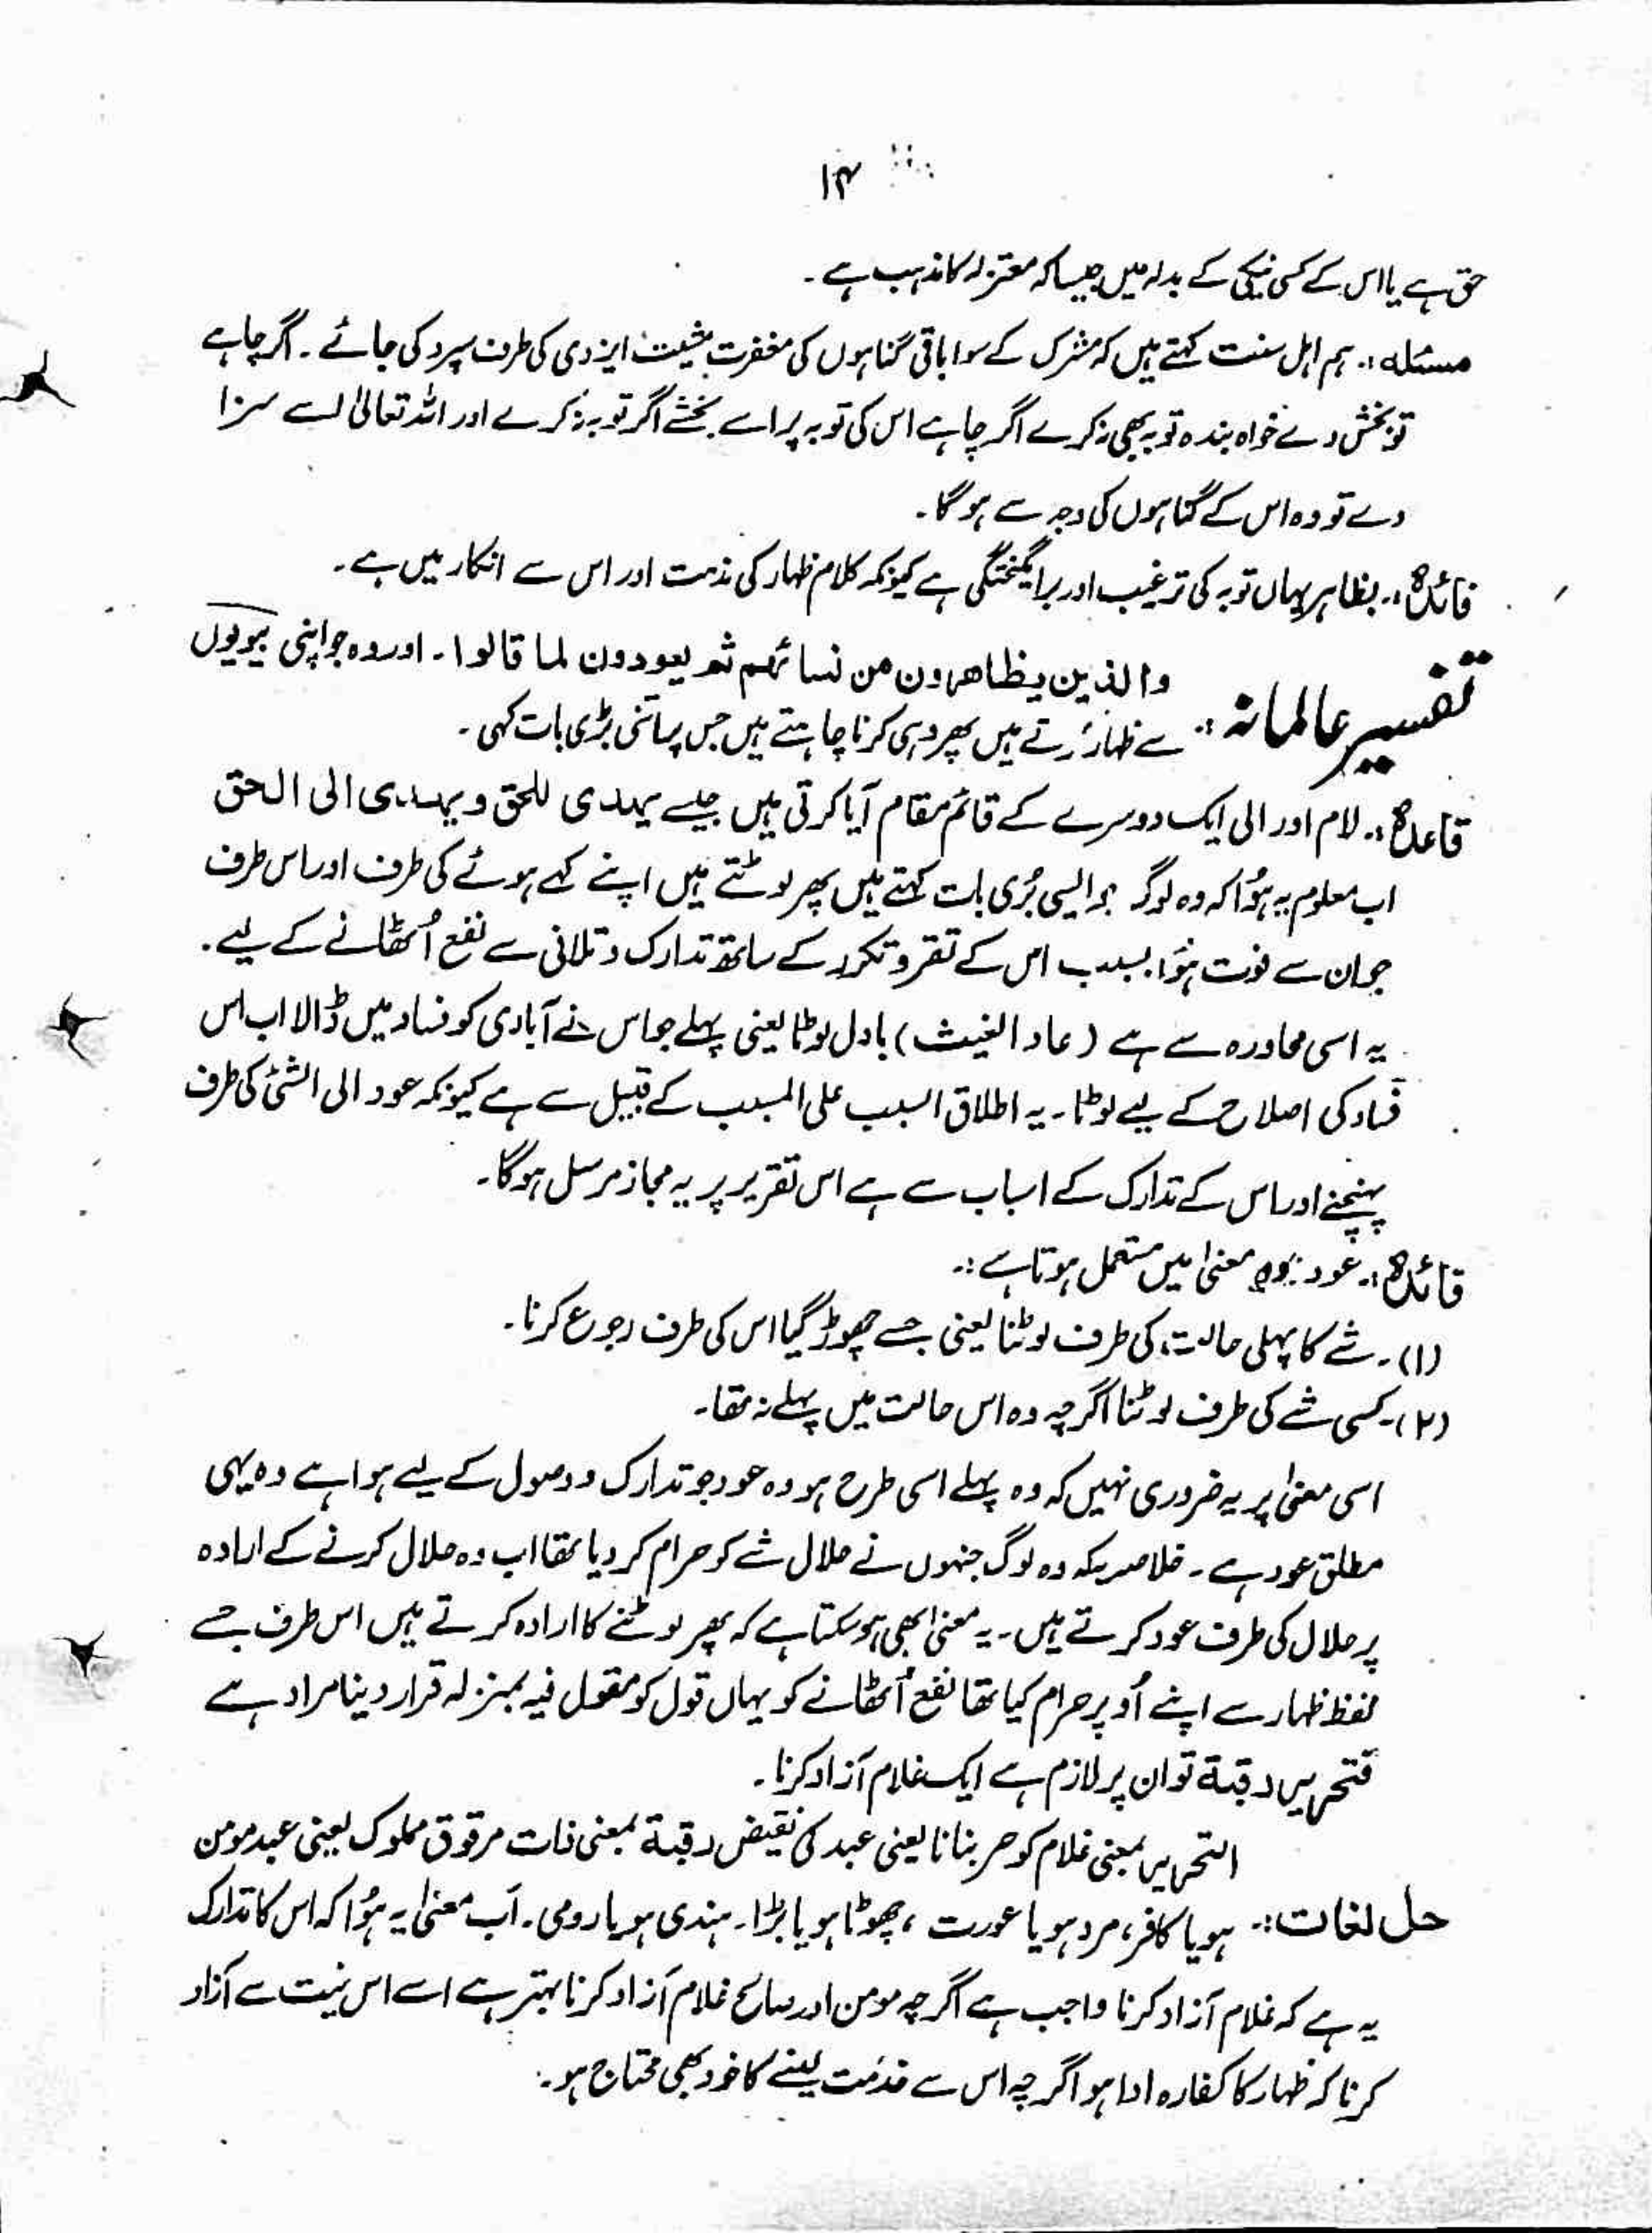 ۱۴
حق ہے یا اس کے کسی نیکی کے بدلہ میں جیسا کہ معتزلہ کا مذہب ہے ۔
مسئلہ :۔ ہم اہل سنت کہتے ہیں کہ شرک کے سوا باقی گناہوں کی مغفرت مشیت ایزدی کی طرف سپرد کی جائے ۔ اگر چاہے
تو بخش دے خواہ بندہ توبہ بھی نہ کرے اگر چاہے اس کی توبہ پر اسے بخشے اگر توبہ نہ کرے اور اللہ تعالیٰ اسے سزا
دے تو وہ اس کے گناہوں کی وجہ سے ہوگا ۔
فائدہ :۔ بظاہر یہاں توبہ کی ترغیب اور برانگیختگی ہے کیونکہ کلام ظہار کی مذمت اور اس سے انکار میں ہے ۔
والذین یظاھرون من نسائھم ثم یعودون لما قالوا ۔ اور وہ جو اپنی بیویوں
تفسیر عالمانہ :۔ سے ظہار کرتے ہیں پھر وہی کرنا چاہتے ہیں جس پر اتنی بڑی بات کہی ۔
قاعدہ :۔ لام اور الی ایک دوسرے کے قائم مقام آیا کرتی ہیں جیسے یہدی للحق و یہدی الی الحق
اب معلوم یہ ہؤا کہ وہ لوگ جو ایسی بُری بات کہتے ہیں پھر لوٹتے ہیں اپنے کہے ہوئے کی طرف اور اس طرف
جو ان سے فوت ہؤا بسبب اس کے تقرر و تکرر کے ساتھ تدارک و تلافی سے نفع اُٹھانے کے لیے ۔
یہ اسی محاورہ سے ہے (عاد الغیث) بادل لوٹا یعنی پہلے جو اس نے آبادی کو فساد میں ڈالا اب اس
فساد کی اصلاح کے لیے لوٹا ۔ یہ اطلاق السبب علی المسبب کے قبیل سے ہے کیونکہ عود الی الشئ کی طرف
پہنچنے اور اس کے تدارک کے اسباب سے ہے اس تقریر پر یہ مجاز مرسل ہوگا ۔
فائدہ :۔ عود دو معنیٰ میں مستعمل ہوتا ہے :۔
(۱) ۔ شے کا پہلی حالت کی طرف لوٹنا یعنی جسے چھوڑ گیا اس کی طرف رجوع کرنا ۔
(۲) ۔ کسی شے کی طرف لوٹنا اگرچہ وہ اس حالت میں پہلے نہ تھا ۔
اسی معنیٰ پر یہ ضروری نہیں کہ وہ پہلے اسی طرح ہو وہ عود جو تدارک و وصول کے لیے ہوا ہے وہ یہی
مطلق عود ہے ۔ خلاصہ یہ کہ وہ لوگ جنہوں نے حلال شے کو حرام کر دیا تھا اب وہ حلال کرنے کے ارادہ
پر حلال کی طرف عود کرتے ہیں ۔ یہ معنیٰ بھی ہو سکتا ہے کہ پھر لوٹنے کا ارادہ کرتے ہیں اس طرف جسے
لفظ ظہار سے اپنے اُوپر حرام کیا تھا نفع اُٹھانے کو یہاں قول کو مقول فیہ بمنزلہ قرار دینا مراد ہے
فتحریر رقبۃ تو ان پر لازم ہے ایک غلام آزاد کرنا ۔
التحریر بمعنی غلام کو حر بنانا یعنی عبد کی نقیض رقبۃ بمعنی ذات مرقوق مملوک یعنی عبد مومن
حل لغات :۔ ہو یا کافر، مرد ہو یا عورت ، چھوٹا ہو یا بڑا ۔ ہندی ہو یا رومی ۔ اب معنیٰ یہ ہؤا کہ اس کا تدارک
یہ ہے کہ غلام آزاد کرنا واجب ہے اگرچہ مومن اور صالح غلام آزاد کرنا بہتر ہے اسے اس نیت سے آزاد
کرنا کہ ظہار کا کفارہ ادا ہو اگرچہ اس سے خدمت لینے کا خود بھی محتاج ہو ۔